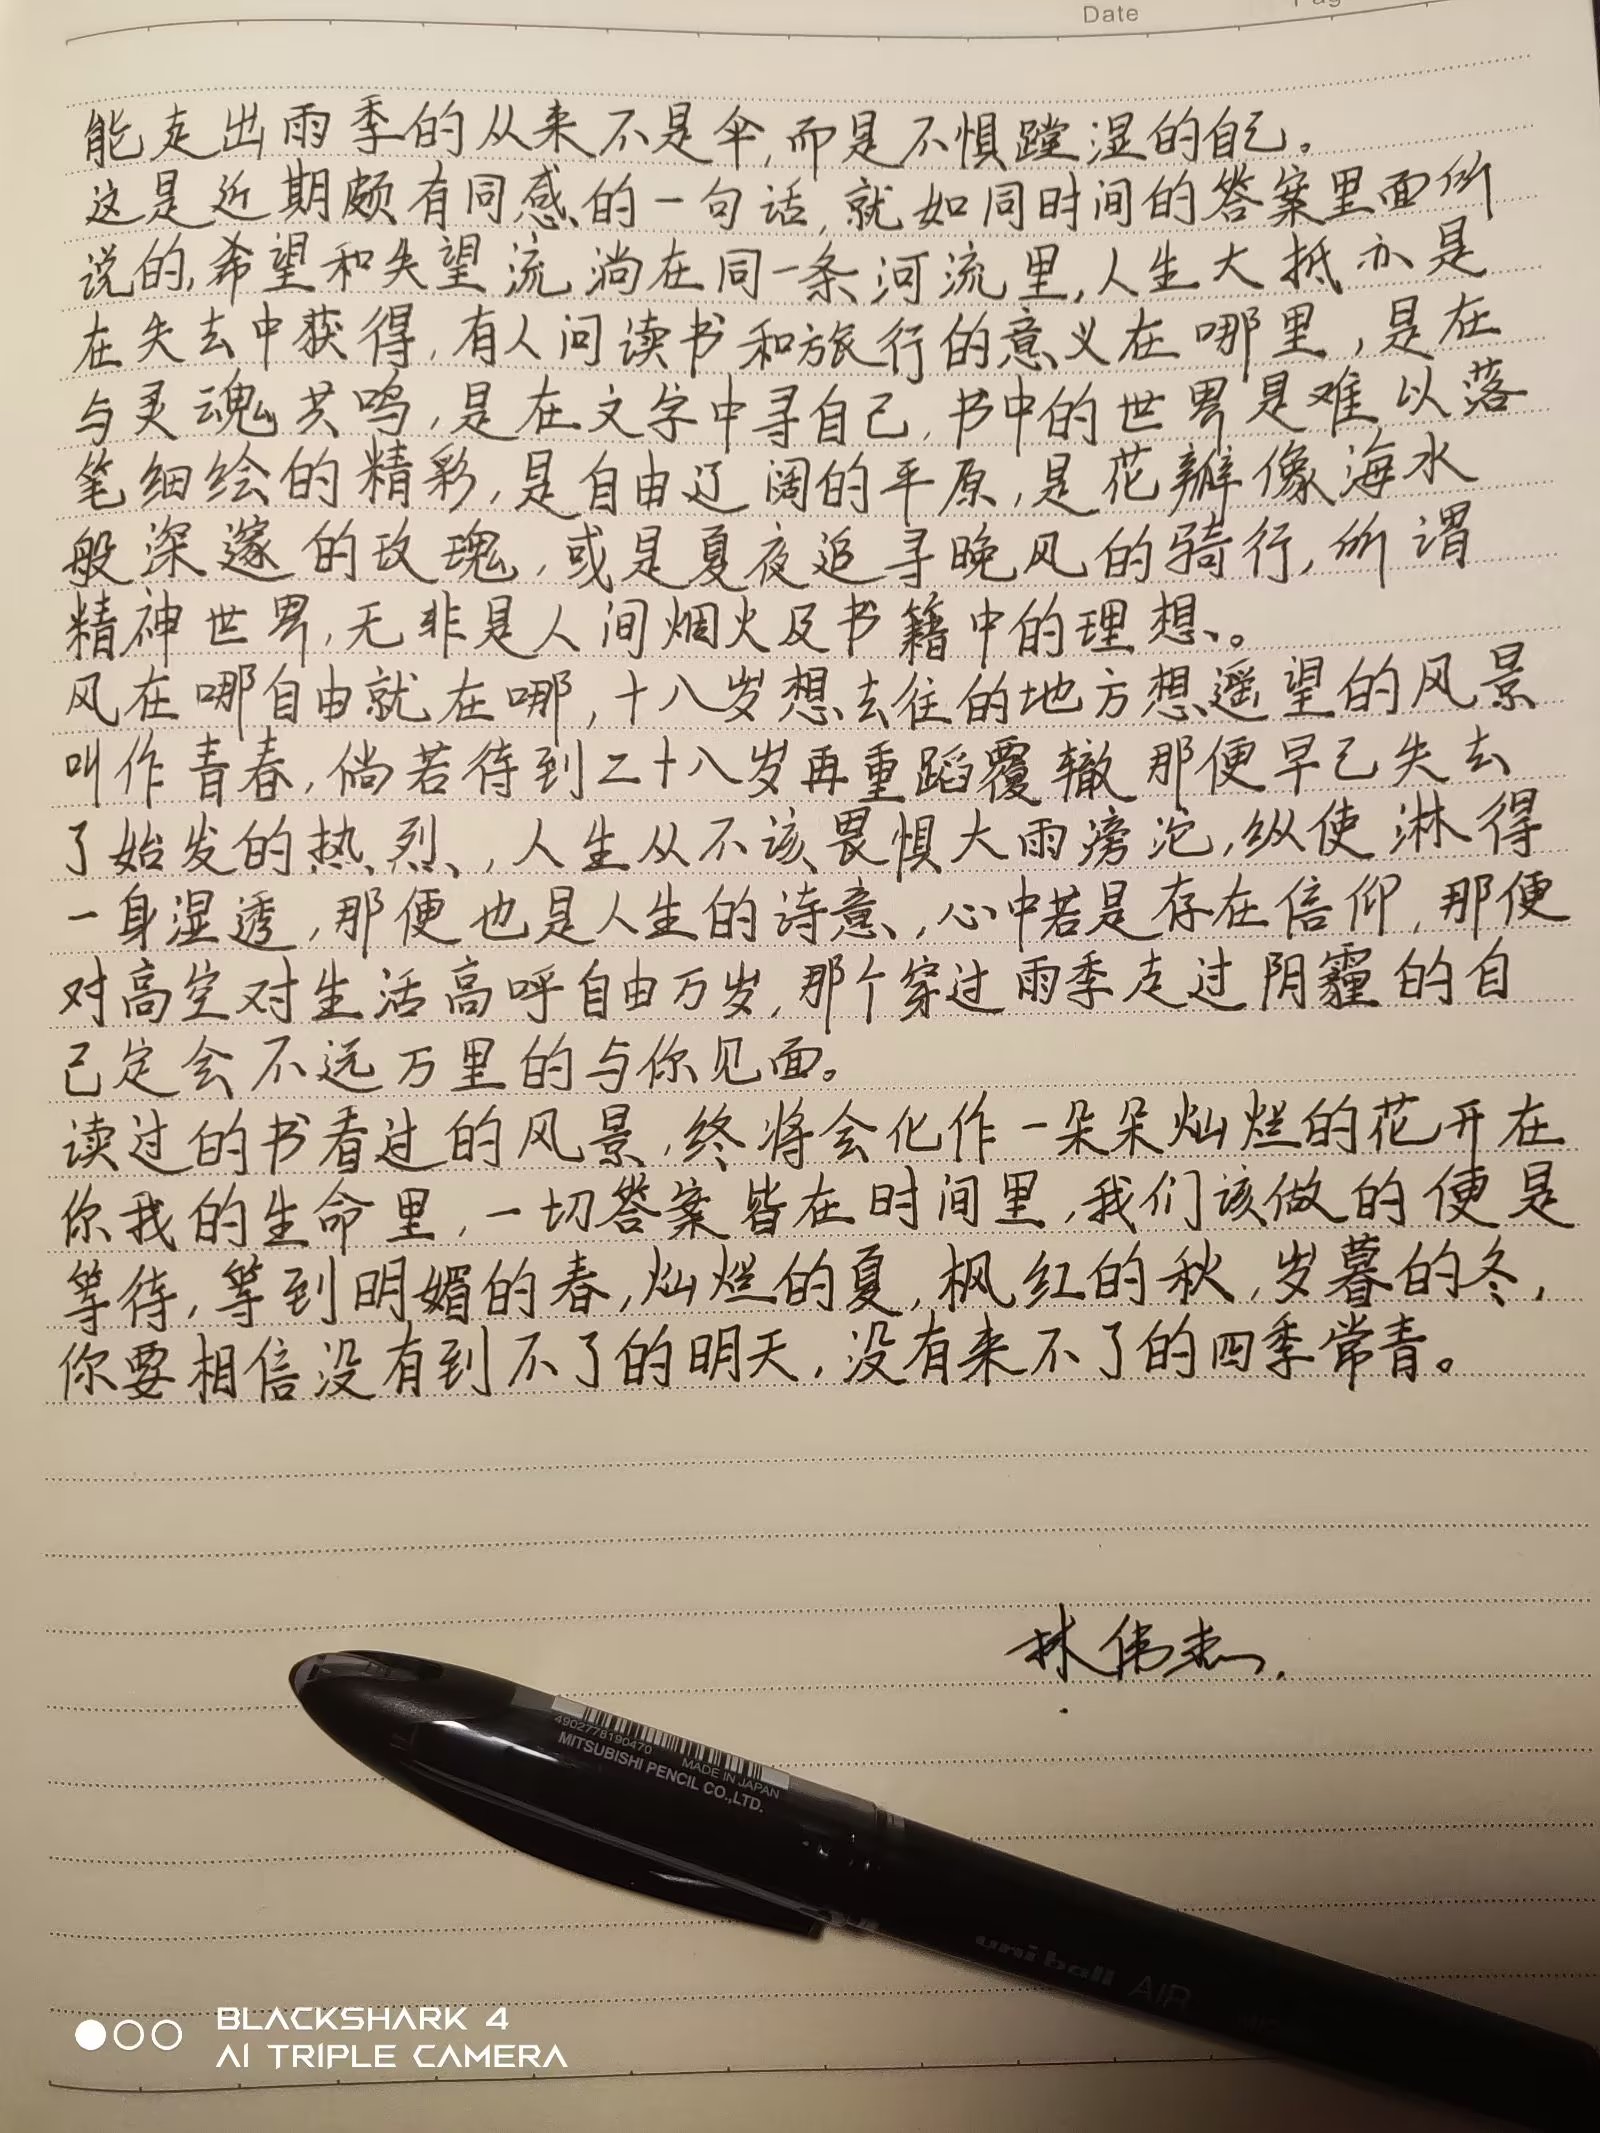 Date
能走出雨季的从来不是伞,而是不惧蹚湿的自己。
这是近期颇有同感的一句话,就如同时间的答案里面所
说的,希望和失望流淌在同一条河流里,人生大抵亦是
在失去中获得,有人问读书和旅行的意义在哪里,是在
与灵魂共鸣,是在文字中寻自己,书中的世界是难以落
笔细绘的精彩,是自由辽阔的平原,是花瓣像海水
般深邃的玫瑰,或是夏夜追寻晚风的骑行,所谓
精神世界,无非是人间烟火及书籍中的理想。
风在哪自由就在哪,十八岁想去往的地方想遥望的风景
叫作青春,倘若待到二十八岁再重蹈覆辙那便早已失去
了始发的热烈,人生从不该畏惧大雨滂沱,纵使淋得
一身湿透,那便也是人生的诗意,心中若是存在信仰,那便
对高空对生活高呼自由万岁,那个穿过雨季走过阴霾的自
己定会不远万里的与你见面。
读过的书看过的风景,终将会化作一朵朵灿烂的花开在
你我的生命里,一切答案皆在时间里,我们该做的便是
等待,等到明媚的春,灿烂的夏,枫红的秋,岁暮的冬,
你要相信没有到不了的明天,没有来不了的四季常青。
林伟杰.
4902778190470 MADE IN JAPAN
MITSUBISHI PENCIL CO.,LTD.
uni-ball AIR
BLACKSHARK 4
AI TRIPLE CAMERA